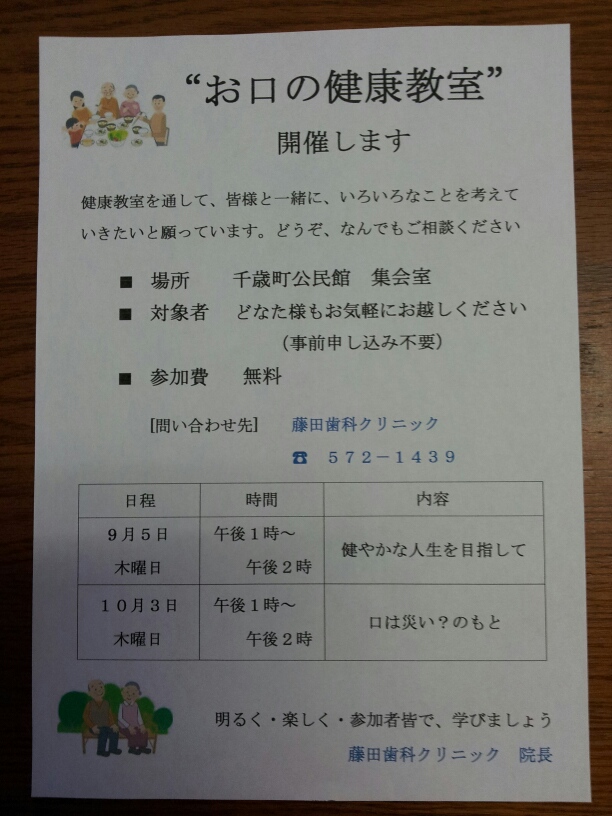 “お口の健康教室”
開催します
健康教室を通して、皆様と一緒に、いろいろなことを考えて
いきたいと願っています。どうぞ、なんでもご相談ください
■ 場所 千歳町公民館 集会室
■ 対象者 どなた様もお気軽にお越しください
（事前申し込み不要）
■ 参加費 無料
[問い合わせ先] 藤田歯科クリニック
☎ ５７２－１４３９
日程 時間 内容
９月５日 午後１時～
木曜日 午後２時
健やかな人生を目指して
１０月３日 午後１時～
木曜日 午後２時
口は災い？のもと
明るく・楽しく・参加者皆で、学びましょう
藤田歯科クリニック 院長